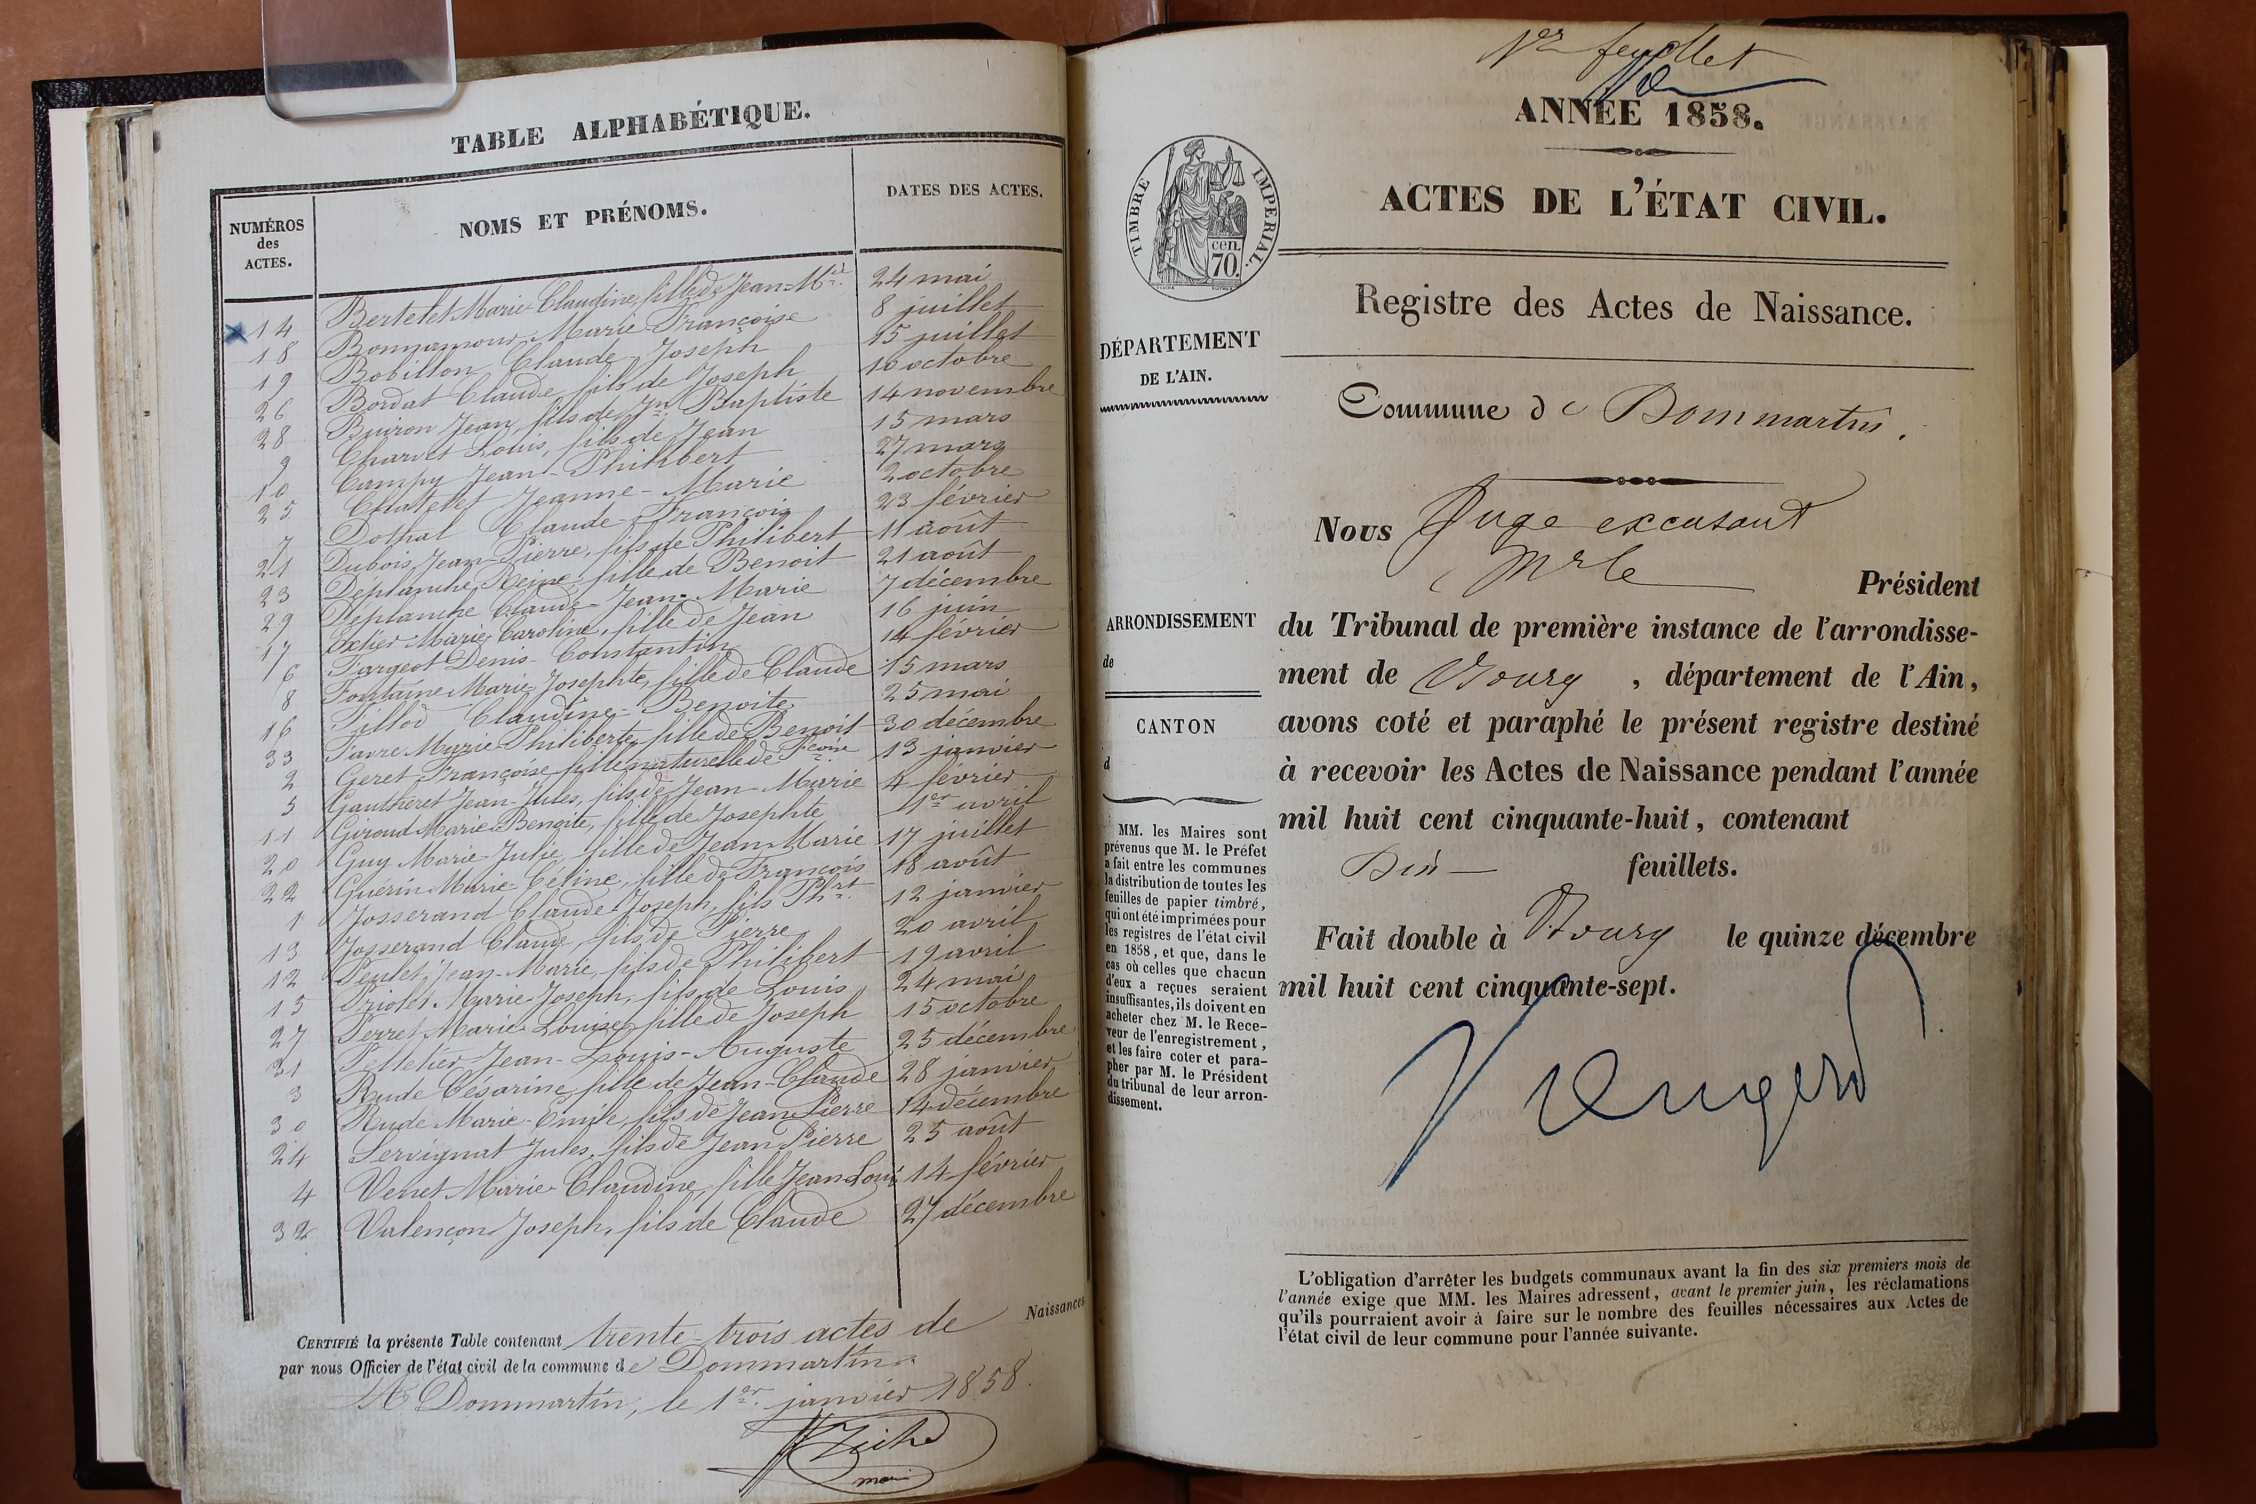 TABLE ALPHABÉTIQUE.
NUMÉROS des ACTES. NOMS ET PRÉNOMS. DATES DES ACTES.
14 Bertelet Marie-Claudine, fille de Jean-Mie. 24 mai
18 Bonnamour Marie Françoise 8 juillet
19 Bobillon, Claude Joseph 15 juillet
26 Bordat Claude fils de Joseph 10 octobre
28 Buiron Jean, fils de Jn Baptiste 14 novembre
9 Charvet Louis, fils de Jean 15 mars
10 Campy Jean-Philibert 27 mars
25 Chatelet Jeanne-Marie 2 octobre
7 Dothal Claude-François 23 février
21 Dubois, Jean-Pierre, fils de Philibert 11 août
23 Déplanche Reine, fille de Benoit 21 août
29 Déplanche Claude-Jean-Marie 7 décembre
17 Marie Caroline, fille de Jean 16 juin
6 Fargeot Denis-Constantin 14 février
8 Fontaine Marie-Josephte, fille de Claude 15 mars
16 Fillod Claudine-Benoite 25 mai
33 Favre Marie-Philiberte, fille de Benoit 30 décembre
2 Geret, Françoise, fille naturelle de 13 janvier
5 Gautheret Jean-Jules, fils de Jean-Marie 4 février
11 Giroud Marie-Benoite, fille de Josephte 1er avril
20 Guy Marie-Julie, fille de Jean Marie 17 juillet
22 Guérin Marie-Céline, fille de François 18 août
1 Josserand Claude-Joseph, fils Phrt. 12 janvier
13 Josserand Claude, fils de Pierre 20 avril
12 Peulet, Jean-Marie, fils de Philibert 19 avril
15 Marie-Joseph, fils de Louis 24 mai
27 Perret Marie-Louise, fille de Joseph 15 octobre
31 Pelletier, Jean-Louis-Auguste 25 décembre
3 Rude Césarine, fille de Jean-Claude 28 janvier
30 Rude Marie-Emile, fils de Jean Pierre 14 décembre
24 Servignat Jules, fils de Jean Pierre 25 août
4 Venet Marie-Claudine, fille Jean Louis 14 février
32 Valençon Joseph, fils de Claude 27 décembre
CERTIFIÉ la présente Table contenant trente-trois actes de Naissances
par nous Officier de l'état civil de la commune de Dommartin.
A Dommartin, le 1er janvier 1858.
maire
1er feuillet
ANNÉE 1858.
ACTES DE L'ÉTAT CIVIL.
TIMBRE IMPERIAL.
cen.
70.
Registre des Actes de Naissance.
DÉPARTEMENT
DE L'AIN.
Commune de Dommartin.
Nous Juge excusant
Mr le
Président
ARRONDISSEMENT
de
CANTON
d
du Tribunal de première instance de l'arrondisse-
ment de Bourg, département de l'Ain,
avons coté et paraphé le présent registre destiné
à recevoir les Actes de Naissance pendant l'année
mil huit cent cinquante-huit, contenant
Dix feuillets.
Fait double à Bourg le quinze décembre
mil huit cent cinquante-sept.
MM. les Maires sont
prévenus que M. le Préfet
a fait entre les communes
la distribution de toutes les
feuilles de papier timbré,
qui ont été imprimées pour
les registres de l'état civil
en 1858, et que, dans le
cas où celles que chacun
d'eux a reçues seraient
insuffisantes, ils doivent en
acheter chez M. le Rece-
veur de l'enregistrement,
et les faire coter et para-
pher par M. le Président
du tribunal de leur arron-
dissement.
L'obligation d'arrêter les budgets communaux avant la fin des six premiers mois de
l'année exige que MM. les Maires adressent, avant le premier juin, les réclamations
qu'ils pourraient avoir à faire sur le nombre des feuilles nécessaires aux Actes de
l'état civil de leur commune pour l'année suivante.